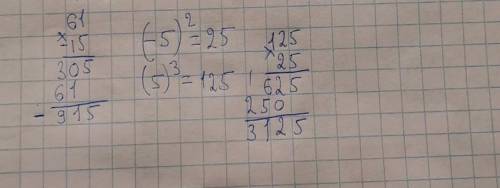 61
× -15
305
61
-915
(-5)² = 25
(5)³ = 125
125
× 25
1 625
250
3125